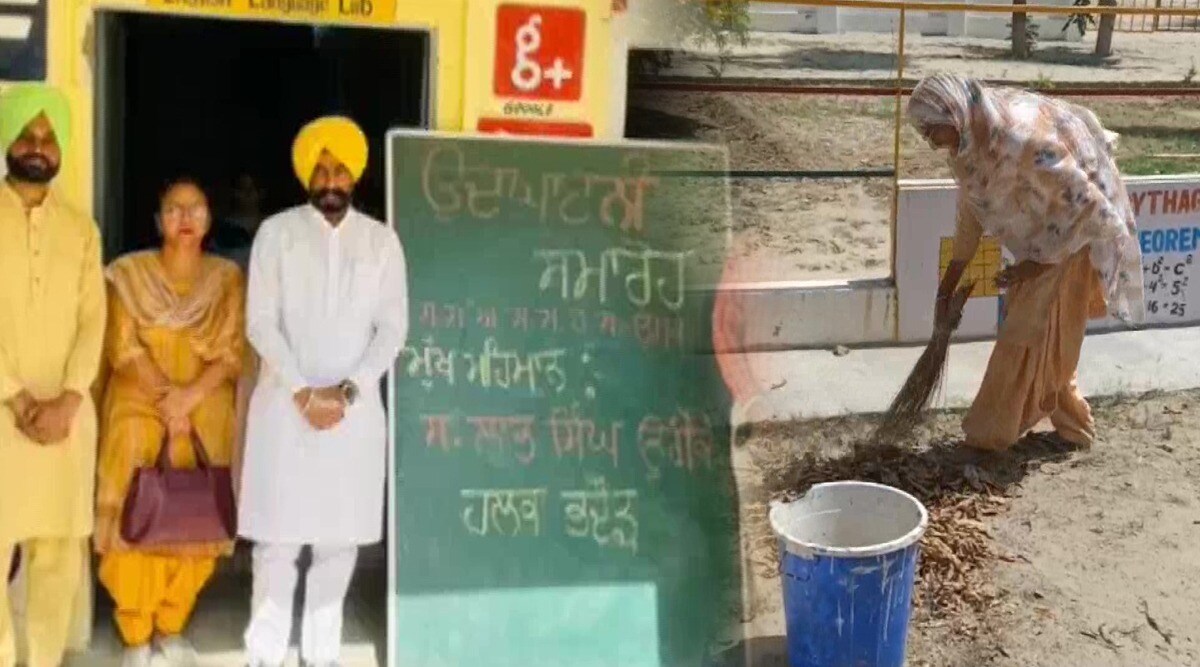 English Language Lab
g+
GOOGLE
ਉਦਘਾਟਨੀ
ਸਮਾਰੋਹ
ਮੁੱਖ ਮਹਿਮਾਨ :
ਸ. ਲਾਭ ਸਿੰਘ ਉਗੋਕੇ
ਹਲਕਾ ਭਦੌੜ
YTHAG
EOREM
+ b² = c²
4² = 5²
16 = 25